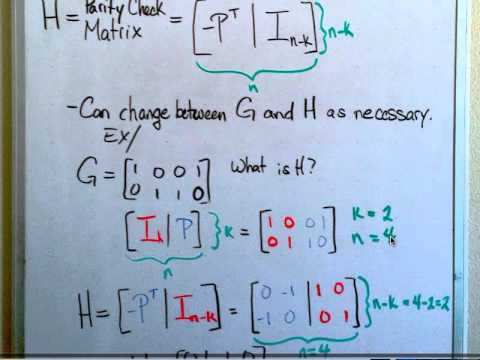 H = Parity Check Matrix = [-Pᵀ | I n-k] } n-k
n
-Can change between G and H as necessary.
EX/
G = [1 0 0 1; 0 1 1 0] What is H?
[I k | P] } k = [1 0 0 1; 0 1 1 0] k = 2
n = 4
n
H = [-Pᵀ | I n-k] = [0 -1 | 1 0; -1 0 | 0 1] } n-k = 4-2 = 2
n=4